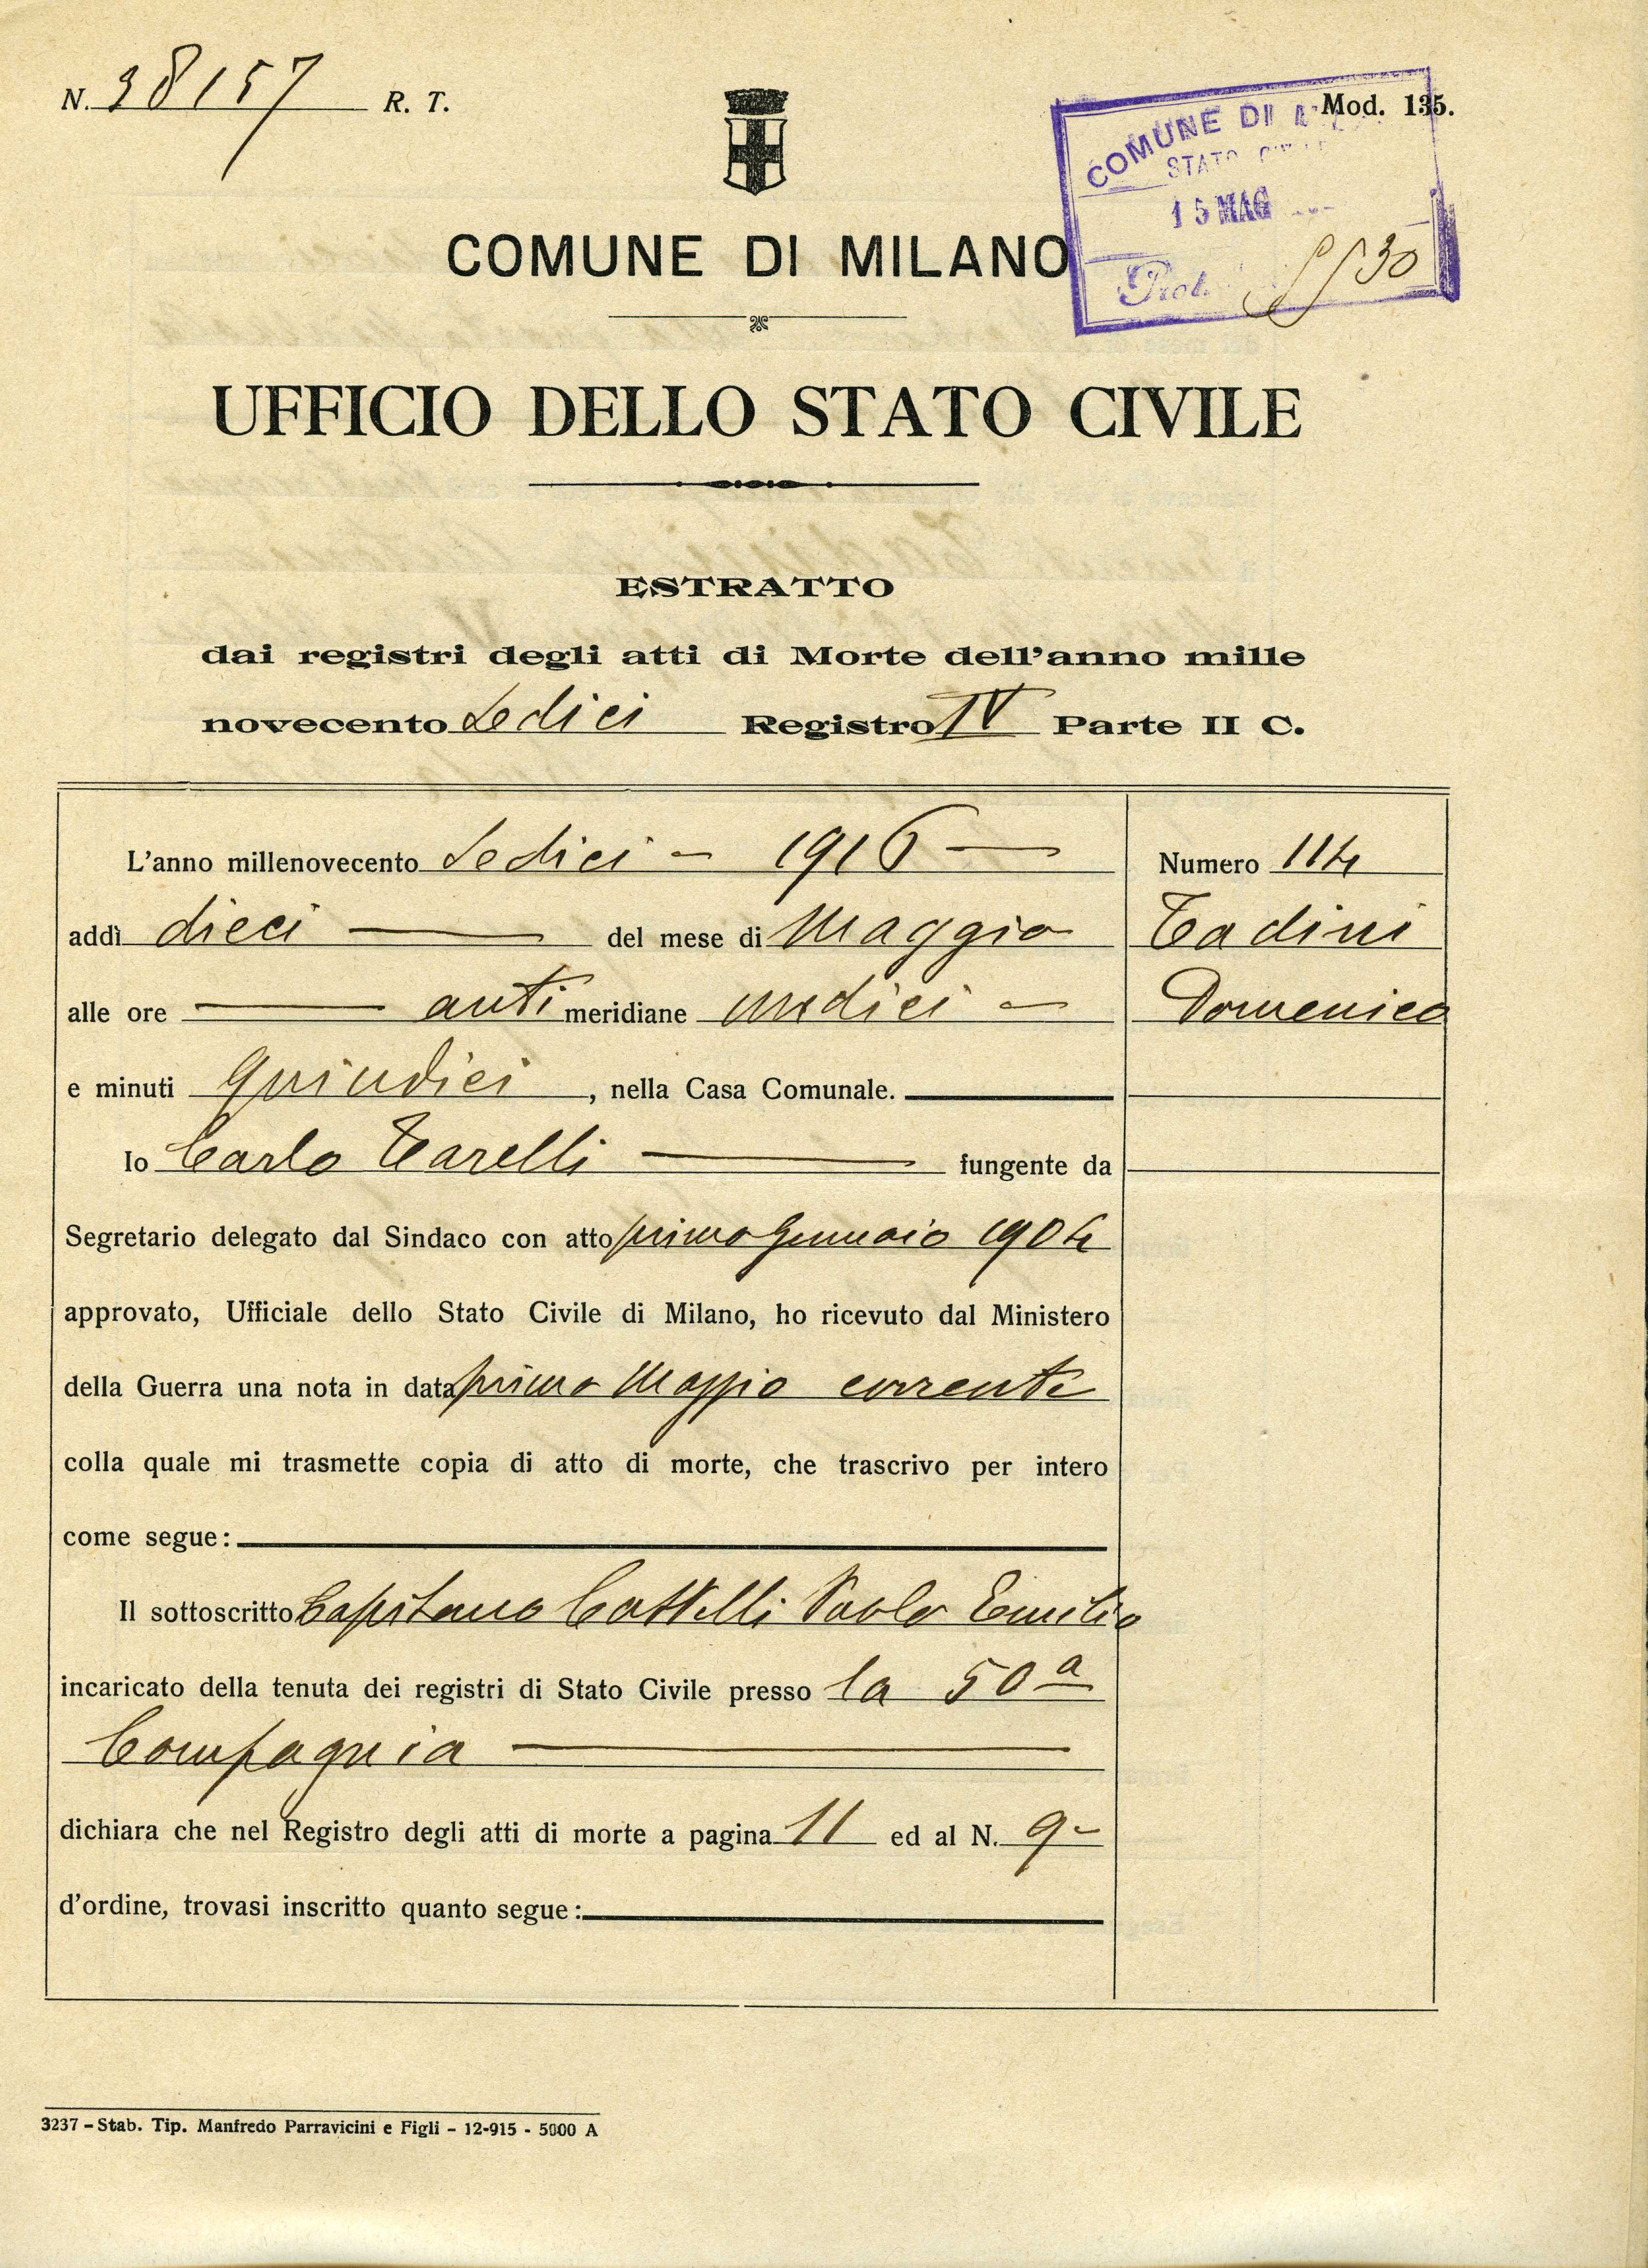 N. 38157 R. T.
Mod. 135.
COMUNE DI
STATO
15 MAG
Prot. 5530
COMUNE DI MILANO
UFFICIO DELLO STATO CIVILE
ESTRATTO
dai registri degli atti di Morte dell'anno mille
novecento Sedici Registro IV Parte II C.
L'anno millenovecento Sedici - 1916 —
Numero 114
addì dieci — del mese di Maggio
Tadini
alle ore — antimeridiane undici -
Domenico
e minuti quindici, nella Casa Comunale.
Io Carlo Tarelli — fungente da
Segretario delegato dal Sindaco con atto primo Gennaio 1904
approvato, Ufficiale dello Stato Civile di Milano, ho ricevuto dal Ministero
della Guerra una nota in data primo Maggio corrente
colla quale mi trasmette copia di atto di morte, che trascrivo per intero
come segue:
Il sottoscritto Capitano Paolo Emilio
incaricato della tenuta dei registri di Stato Civile presso la 50a
Compagnia —
dichiara che nel Registro degli atti di morte a pagina 11 ed al N. 9-
d'ordine, trovasi inscritto quanto segue:
3237 - Stab. Tip. Manfredo Parravicini e Figli - 12-915 - 5000 A